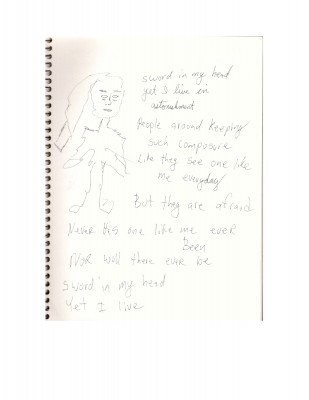 sword in my head
yet I live in
astonishment
People around keeping
such composure
Like they see one like
me everyday
But they are afraid
Never has one like me ever
Been
Nor will there ever be
sword in my head
Yet I live